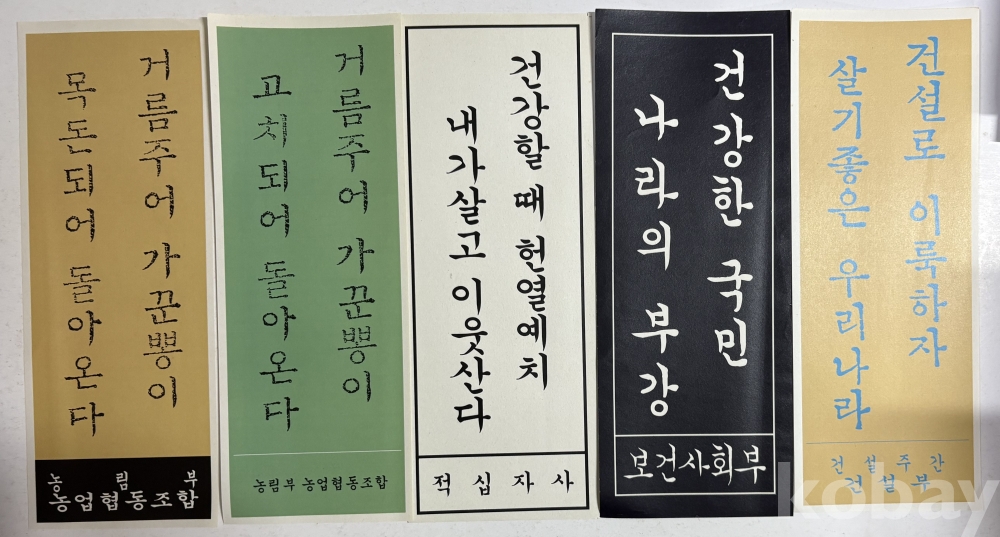 거름주어 가꾼뽕이
목돈되어 돌아온다
농림부
농업협동조합
거름주어 가꾼뽕이
고치되어 돌아온다
농림부 농업협동조합
건강할 때 헌열예치
내가살고 이웃산다
적십자사
건강한 국민
나라의 부강
보건사회부
건설로 이룩하자
살기좋은 우리나라
건설주간
건설부
kobay